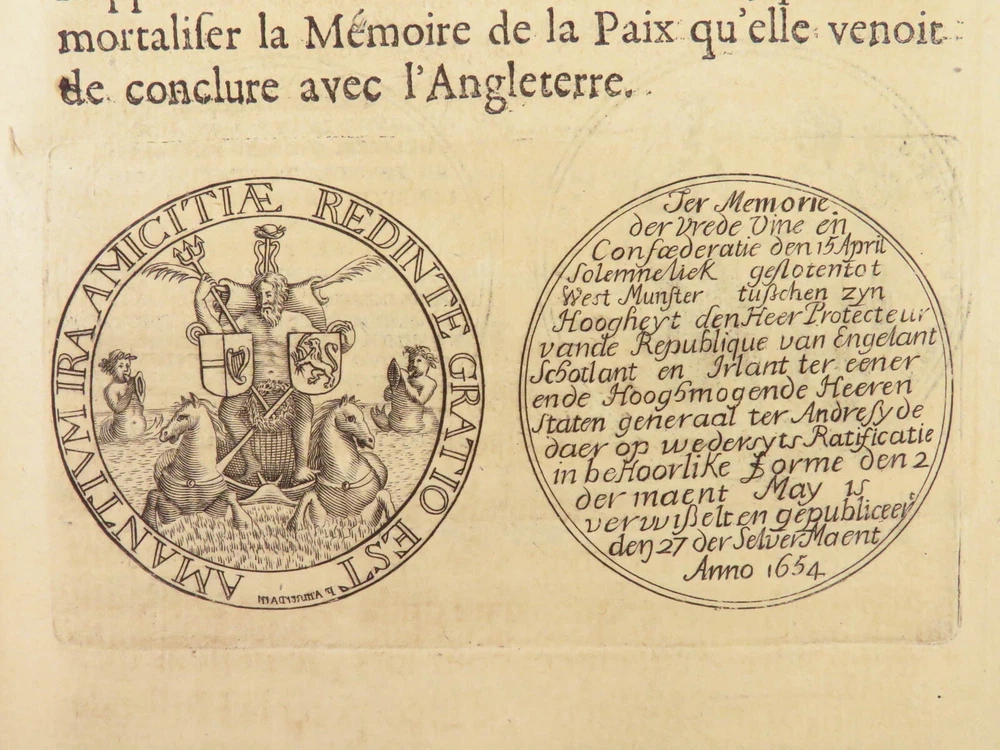 mortaliſer la Mémoire de la Paix qu'elle venoit
de conclure avec l'Angleterre.
AMANTIVM IRA AMICITIÆ REDINTEGRATIO EST
Ter Memorie.
der Vrede Vine en
Confœderatie den 15 April
Solemneliek geslotentot
West Munster tußchen zyn
Hoogheyt den Heer Protecteur
vande Republique van Engelant
Schotlant en Irlant ter eener
ende Hooghmogende Heeren
Staten generaal ter Andresyde
daer op wedersyts Ratificatie
in beHoorliKe Forme den 2
der maent May is
verwißelt en gepubliceert
den 27 der Selver Maent
Anno 1654